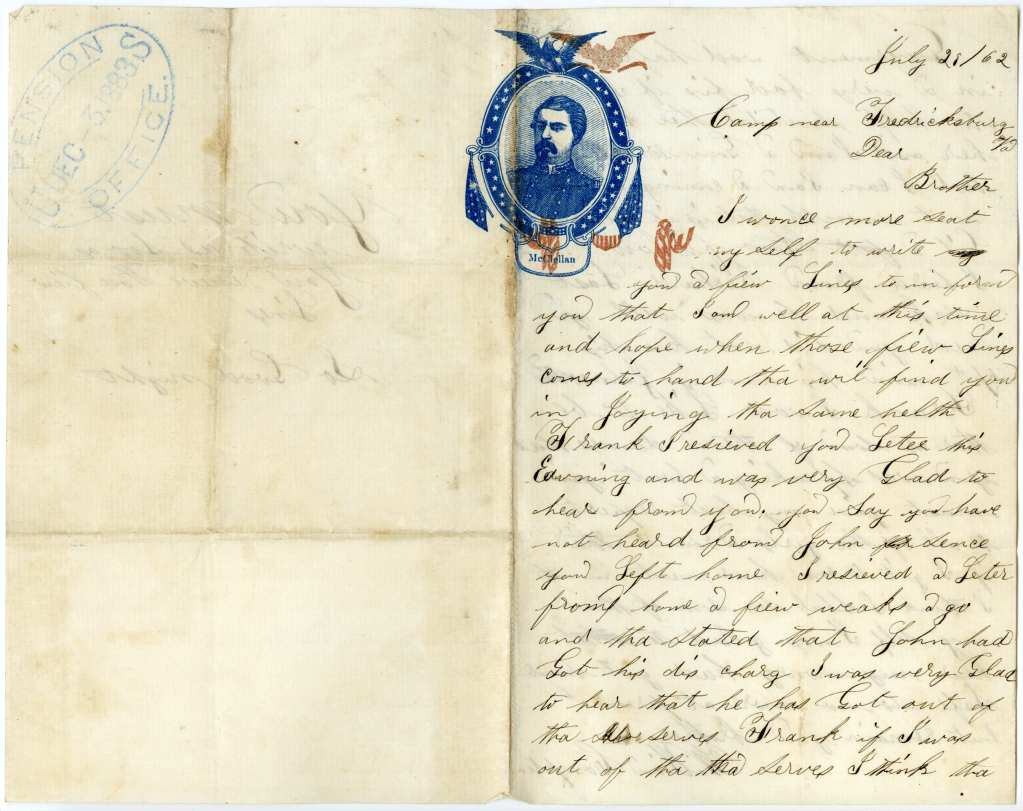 PENSION
U.S. DEC-3.1883
OFFICE.
McClellan
July 21/62
Camp near Fredricksburg
Va
Dear
Brother
I wonce more seat
my self to write
you a fiew Lines to in form
you that I am well at this time
and hope when those fiew Lines
comes to hand tha wil find you
in Joying tha same helth
Frank I resieved you Letee this
Eavning and was very Glad to
hear from you. you say you have
not heard from John sence
you Left home I resieved a Leter
from home a fiew weaks a go
and tha stated that John had
Got his dis charg I was very Glad
to hear that he has Got out of
tha serves Frank if I was
out of tha serves I think tha